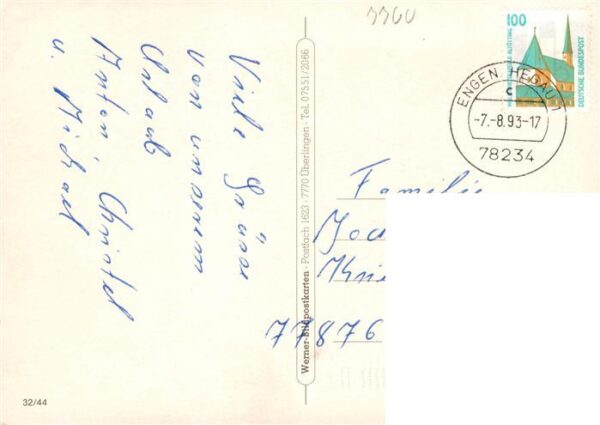 Viele Grüsse
von unserem
Urlaub
Anton, Christel
u. Michael
32/44
Werner-Bildpostkarten · Postfach 1623 · 7770 Überlingen · Tel. 07551/2066
3360
100
ALTÖTTING
DEUTSCHE BUNDESPOST
ENGEN, HEGAU 1
c
-7.-8.93-17
78234
Familie
77876